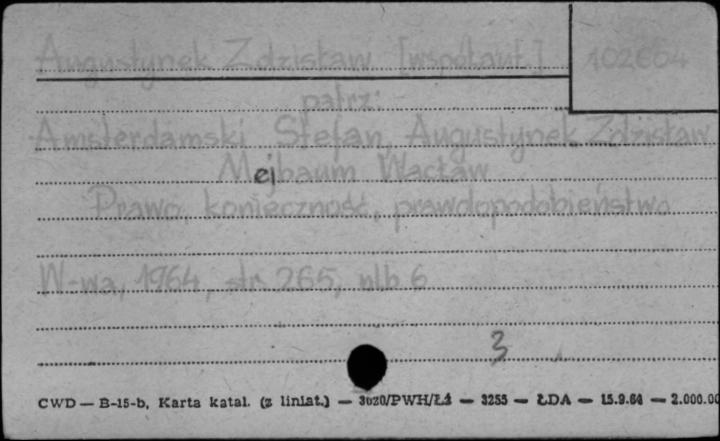 Augustynek Zdzisław [współaut.] 102664
patrz:
Amsterdamski Stefan, Augustynek Zdzisław
Mejbaum Wacław
Prawo, konieczność, prawdopodobieństwo
W-wa, 1964, str. 265, nlb 6
3
CWD — B-15-b, Karta katal. (z liniat.) — — 3255 — ŁDA — 15.9.64 — 2.000.00